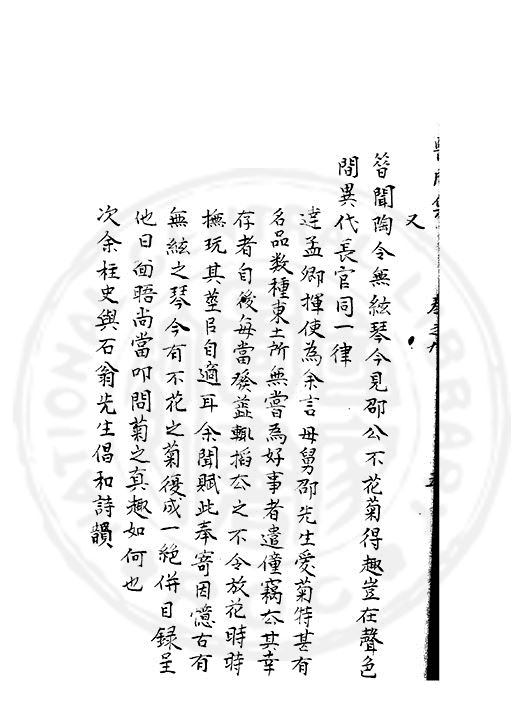 又
昔聞陶令無絃琴今見邵公不花菊得趣豈在聲色
間異代長官同一律
達孟卿揮使為余言母舅邵先生愛菊特甚有
名品数種東土所無嘗為好事者遣僮竊厺其幸
存者自後每當發蕋輒搯厺之不令放花時時
撫玩其莖㠯自適耳余聞賦此奉寄因憶古有
無絃之琴今有不花之菊復成一絕併目録呈
他日面晤尚當叩問菊之真趣如何也
次余柱史與石翁先生倡和詩韻